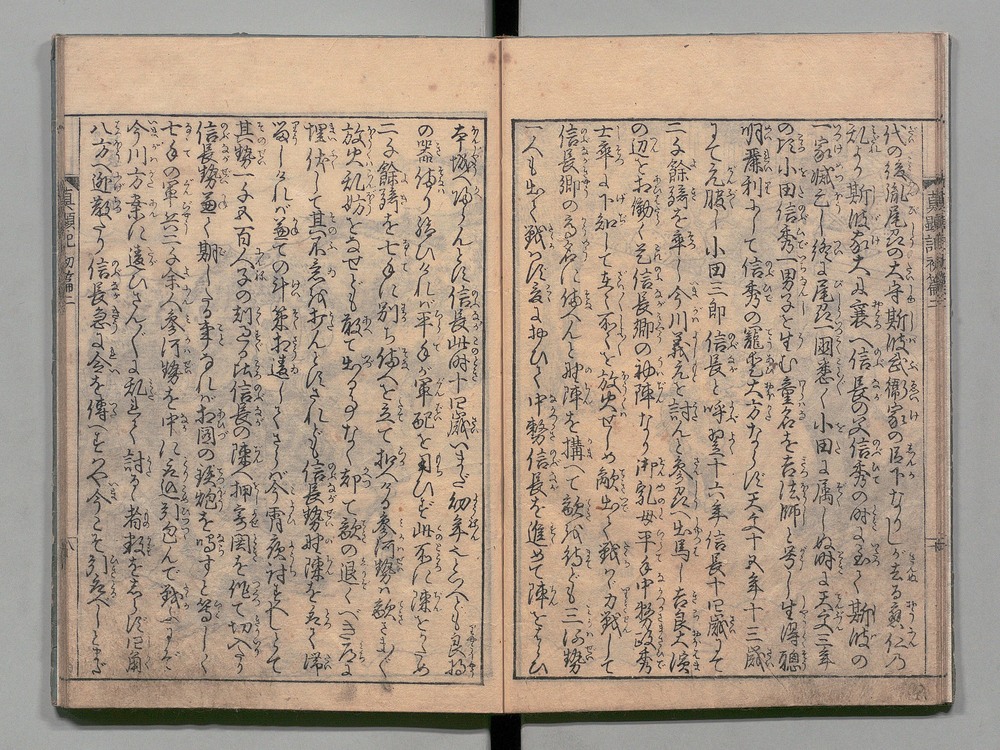 代の後胤尾刕の大守斯波武衛家の臣下なりしが去る應仁乃
乱より斯波家大に衰へ信長の父信秀の時に至り斯波の
一家滅亡し終に尾刕一國悉く小田に属しぬ時に天文三年
の頃小田信秀一男子を生む童名を吉法師と号し生得聰
明發利にして信秀の寵愛大方ならず天文十五年十三歳
にて元服し小田三郎信長と呼翌十六年信長十四歳にて
二千餘騎を率し今川義元を討んと参刕へ出馬し吉良大濱
の辺をお働く是信長卿の初陣なり御乳母平手中務政秀
士卒に下知して在々所々を放火せしめ敵出て戦はゞ力戦して
信長卿の高名に備へんと野陣を搆へて敵を待ども三河勢
一人も出て戦はず爰におひて中務信長を進めて陣をはらひ
本城へ帰らんとす信長此時十四歳いまだ幼年といへども良将
の器備り給ひければ平手が軍配を用ひず此所に陣をかため
二千餘騎を七手に別ち備へを立て扣へたる参河勢は敵
放火乱妨をなせども敢て出る事なく却て敵の退くべき道に
埋伏して其不意をおんとすされども信長勢野陣を居て滞
留しければ兼ての斗策相違しさらば今宵夜討すべしとて
其勢一千五百人子の刻過る比信長の陣へ押寄閧を作て切入たり
信長勢兼て期したる事なれば相図の鉄炮を鳴すと等しく
七手の軍兵二千余人参河勢を中に追込引包んで戦ふまで
今川方案に違ひさん〴〵に乱立て討るゝ者数をしらず四角
八方へ逃散たり信長急に令を傳へもはや今こそ引取べしとまだ
真顕記 初篇二
八